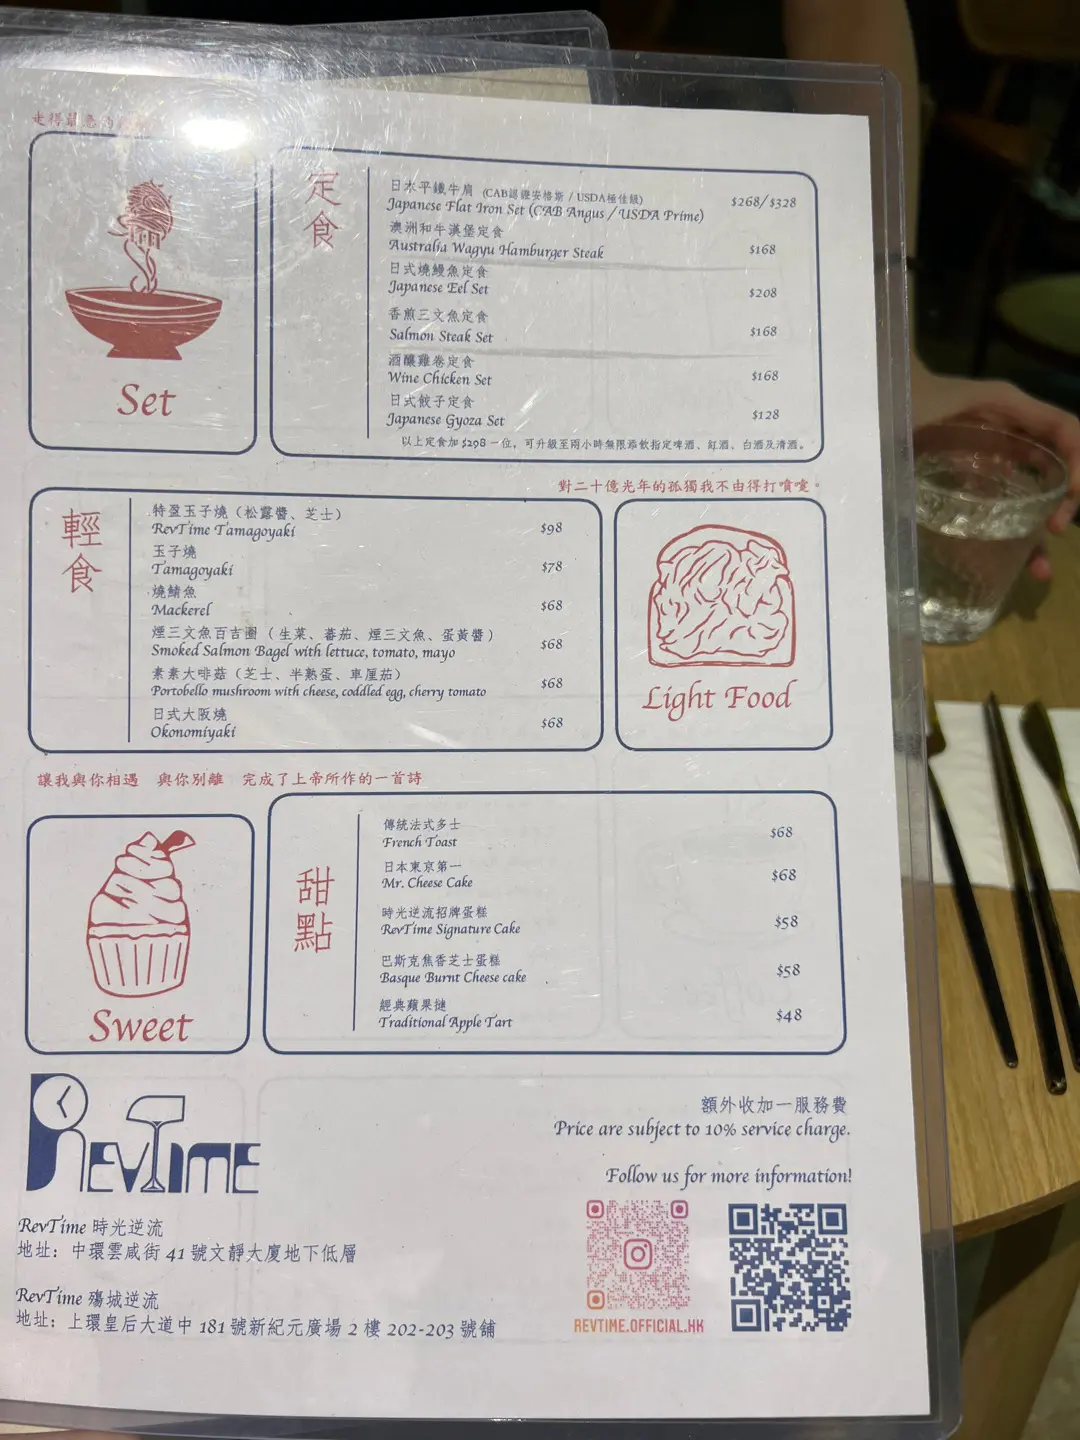 走得最急的
Set
定食
日本平鐵牛扇 (CAB認證安格斯 / USDA極佳級)
Japanese Flat Iron Set (CAB Angus / USDA Prime)
$268/$328
澳洲和牛漢堡定食
Australia Wagyu Hamburger Steak
$168
日式燒鰻魚定食
Japanese Eel Set
$208
香煎三文魚定食
Salmon Steak Set
$168
酒釀雞卷定食
Wine Chicken Set
$168
日式餃子定食
Japanese Gyoza Set
$128
以上定食加 $298 一位，可升級至兩小時無限添飲指定啤酒、紅酒、白酒及清酒。
對二十億光年的孤獨我不由得打噴嚏。
輕食
特盈玉子燒（松露醬、芝士）
RevTime Tamagoyaki
$98
玉子燒
Tamagoyaki
$78
燒鯖魚
Mackerel
$68
煙三文魚百吉圈（生菜、蕃茄、煙三文魚、蛋黃醬）
Smoked Salmon Bagel with lettuce, tomato, mayo
$68
素素大啡菇（芝士、半熟蛋、車厘茄）
Portobello mushroom with cheese, coddled egg, cherry tomato
$68
日式大阪燒
Okonomiyaki
$68
Light Food
讓我與你相遇 與你別離 完成了上帝所作的一首詩
Sweet
甜點
傳統法式多士
French Toast
$68
日本東京第一
Mr. Cheese Cake
$68
時光逆流招牌蛋糕
RevTime Signature Cake
$58
巴斯克焦香芝士蛋糕
Basque Burnt Cheese cake
$58
經典蘋果撻
Traditional Apple Tart
$48
REVTIME
額外收加一服務費
Price are subject to 10% service charge.
Follow us for more information!
REVTIME.OFFICIAL.HK
RevTime 時光逆流
地址：中環雲咸街 41 號文靜大廈地下低層
RevTime 殤城逆流
地址：上環皇后大道中 181 號新紀元廣場 2 樓 202-203 號舖